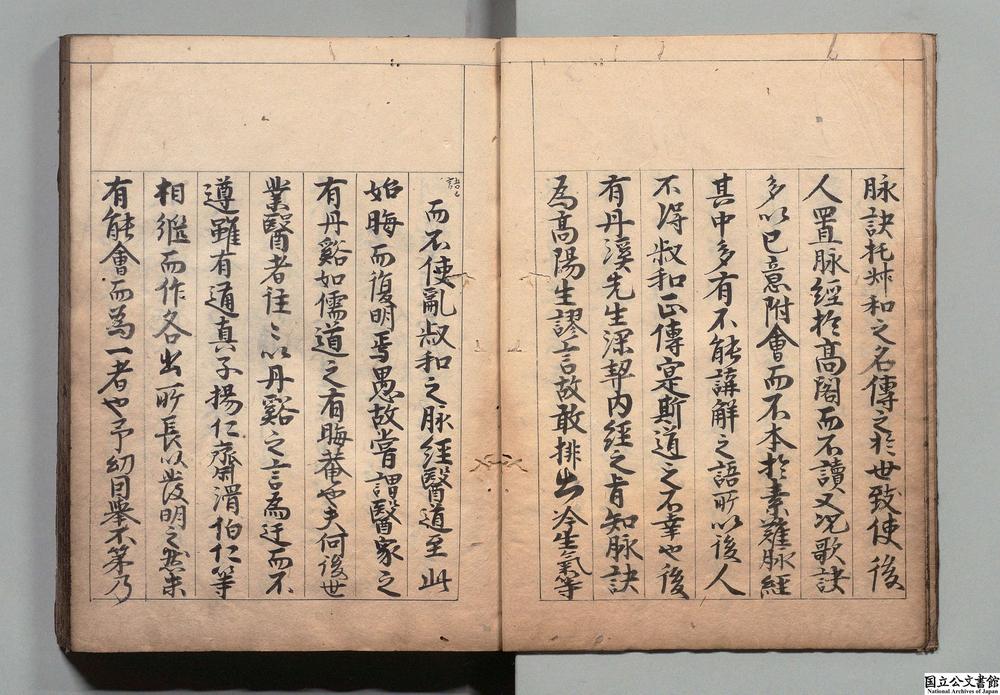 脉訣托叔和之名傳之於世致使後
人置脉經於高閣而不讀又況歌訣
多以己意附會而不本於素難脉經
其中多有不能講解之語所以後人
不得叔和正傳寔斯道之不幸也後
有丹溪先生深契内經之旨知脉訣
為高陽生謬言故敢排出冷生氣等
語
而不使亂叔和之脉經醫道至此
始晦而復明焉愚故嘗謂醫家之
有丹谿如儒道之有晦菴也夫何後世
業醫者往〻以丹谿之言為迂而不
遵雖有通真子揚仁齋滑伯仁等
相繼而作各出所長以發明之然未
有能會而為一者也予幼因舉不第乃
国立公文書館
National Archives of Japan